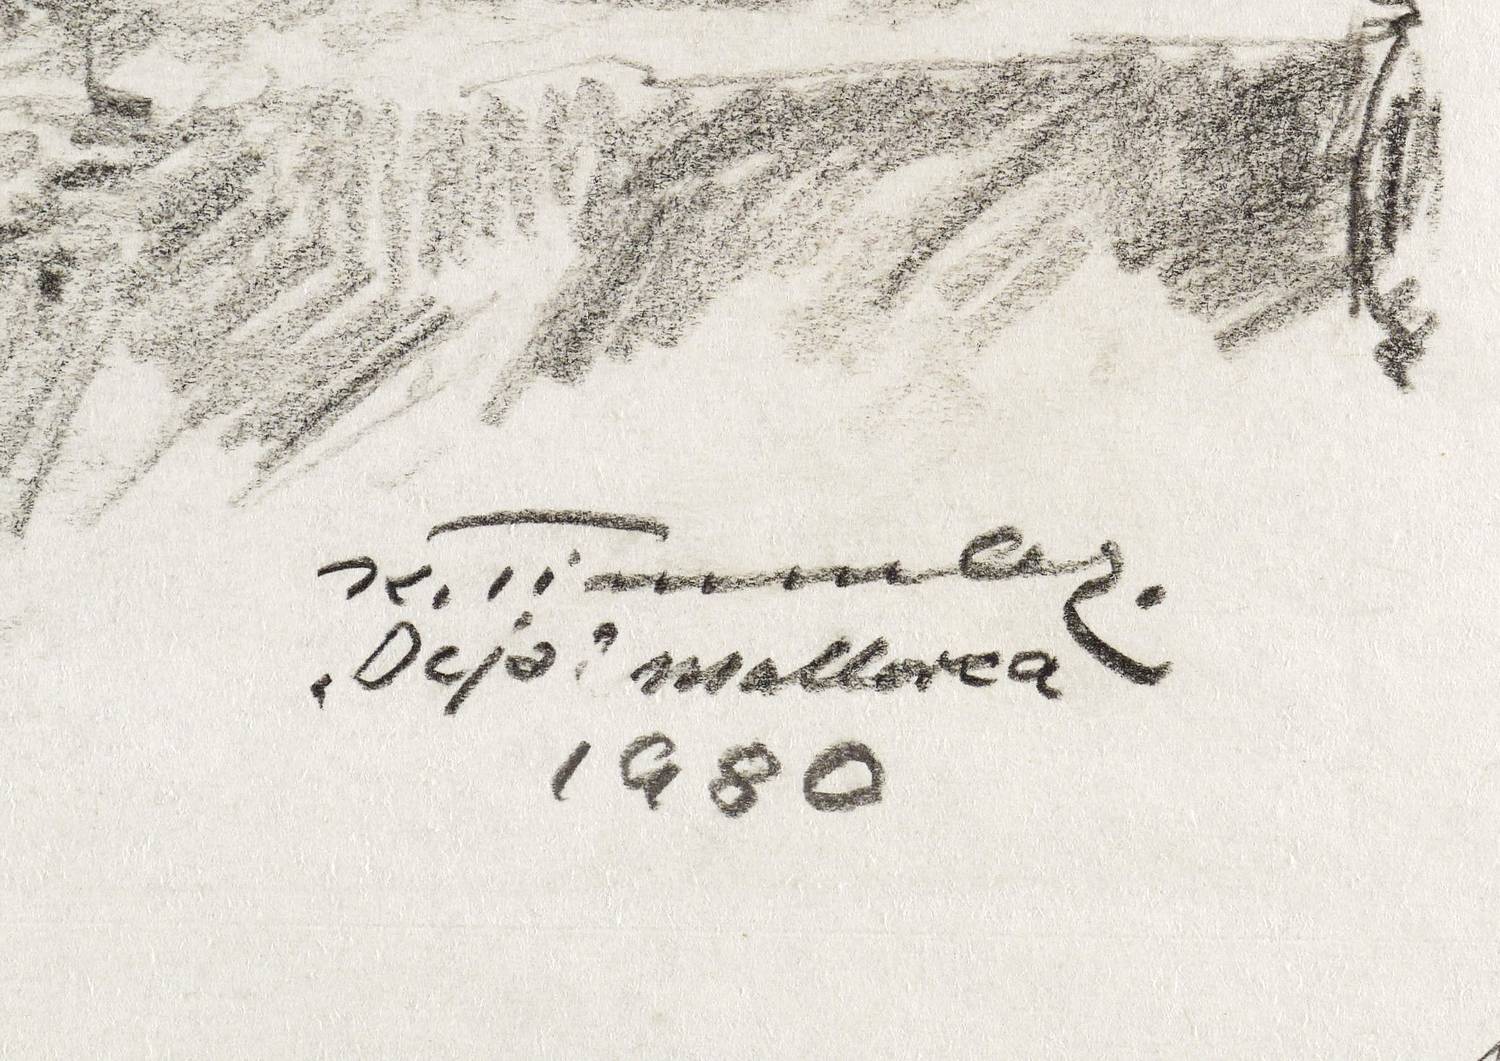 K. Timmler.
„Deja“ Mallorca
1980